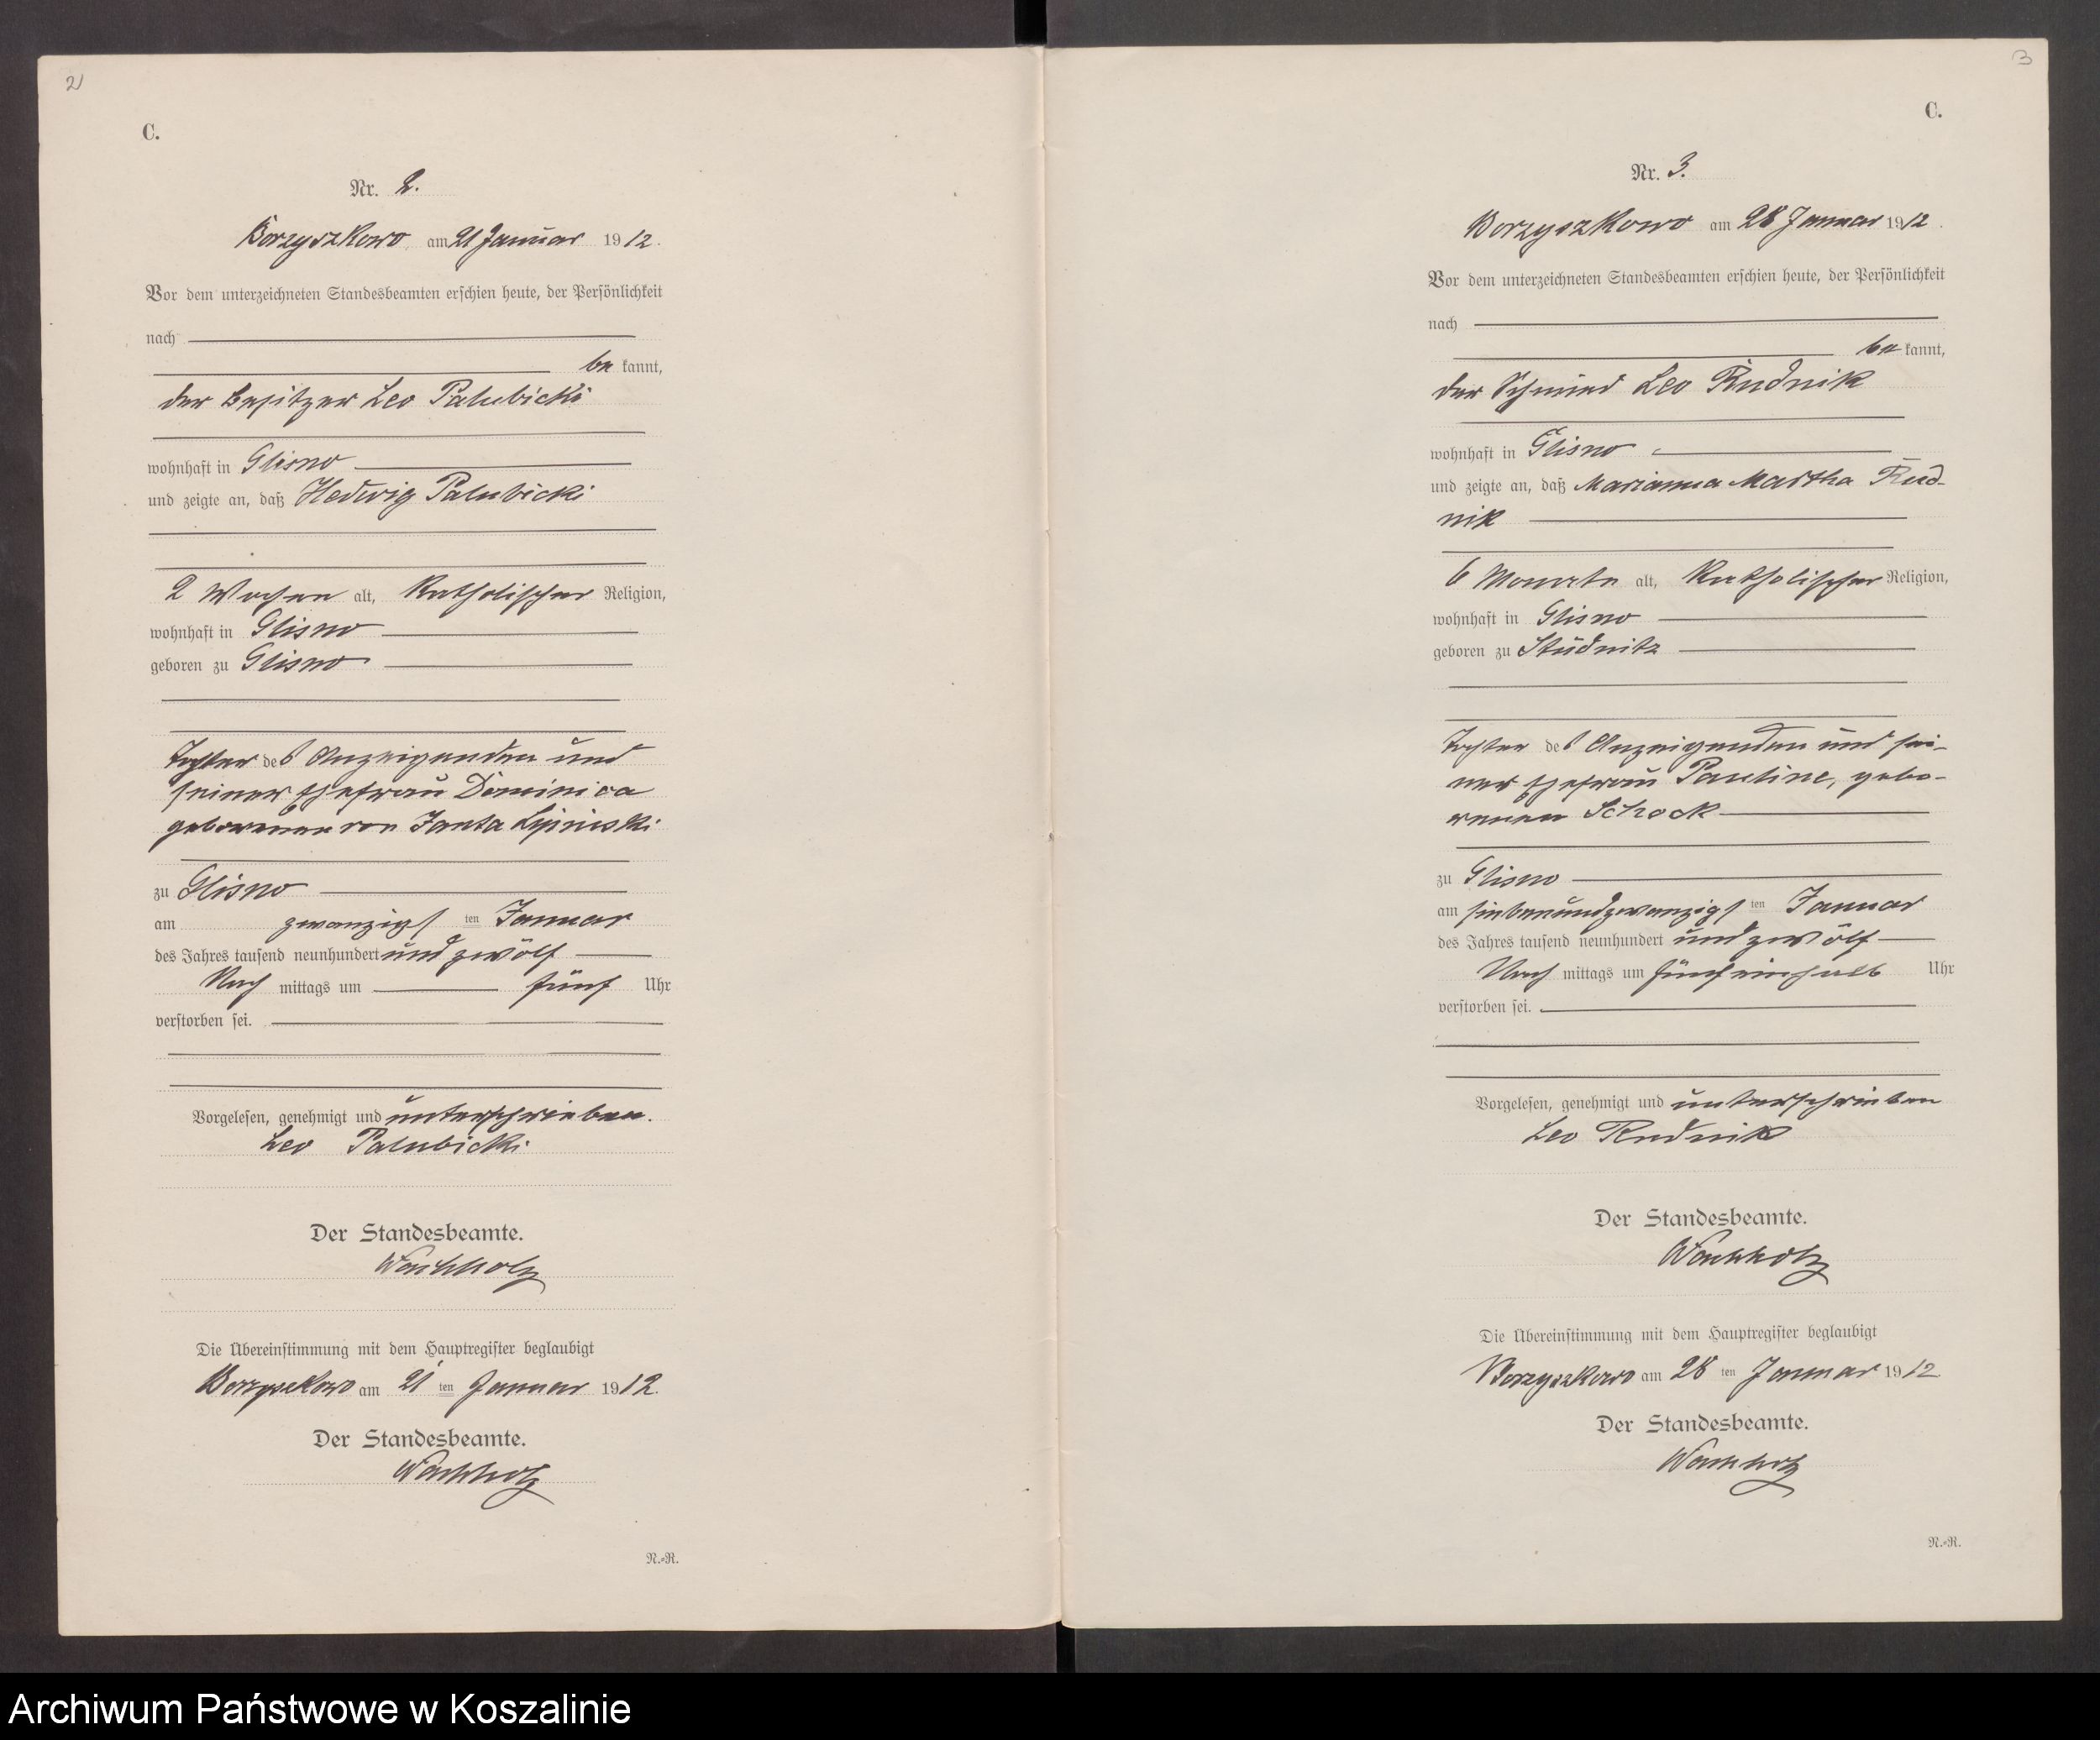 2
C.
Nr. 2.
Borzyszkowo am 21 Januar 1912.
Vor dem unterzeichneten Standesbeamten erschien heute, der Persönlichkeit
nach
be kannt,
der Besitzer Leo Palubicki
wohnhaft in Glisno
und zeigte an, daß Hedwig Palubicki
2 Wochen alt, katholischer Religion,
wohnhaft in Glisno
geboren zu Glisno
Tochter des Anzeigenden und
seiner Ehefrau Dominica
geborenen von Janta Lipinski
zu Glisno
am zwanzigsten Januar
des Jahres tausend neunhundert und zwölf
Nach mittags um fünf Uhr
verstorben sei.
Vorgelesen, genehmigt und unterschrieben.
Leo Palubicki
Der Standesbeamte.
Wachholz
Die Übereinstimmung mit dem Hauptregister beglaubigt
Borzyszkowo am 21ten Januar 1912.
Der Standesbeamte.
Wachholz
N.-R.
3
C.
Nr. 3.
Borzyszkowo am 28 Januar 1912.
Vor dem unterzeichneten Standesbeamten erschien heute, der Persönlichkeit
nach
be kannt,
der Schmied Leo Rudnik
wohnhaft in Glisno
und zeigte an, daß Marianna Martha Rud-
nik
6 Monate alt, katholischer Religion,
wohnhaft in Glisno
geboren zu Studnitz
Tochter des Anzeigenden und sei-
ner Ehefrau Pauline, gebo-
renen Schock
zu Glisno
am siebenundzwanzigsten Januar
des Jahres tausend neunhundert und zwölf
Nach mittags um fünfeinhalb Uhr
verstorben sei.
Vorgelesen, genehmigt und unterschrieben
Leo Rudnik
Der Standesbeamte.
Wachholz
Die Übereinstimmung mit dem Hauptregister beglaubigt
Borzyszkowo am 28 ten Januar 1912
Der Standesbeamte.
Wachholz
N.-R.
Archiwum Państwowe w Koszalinie